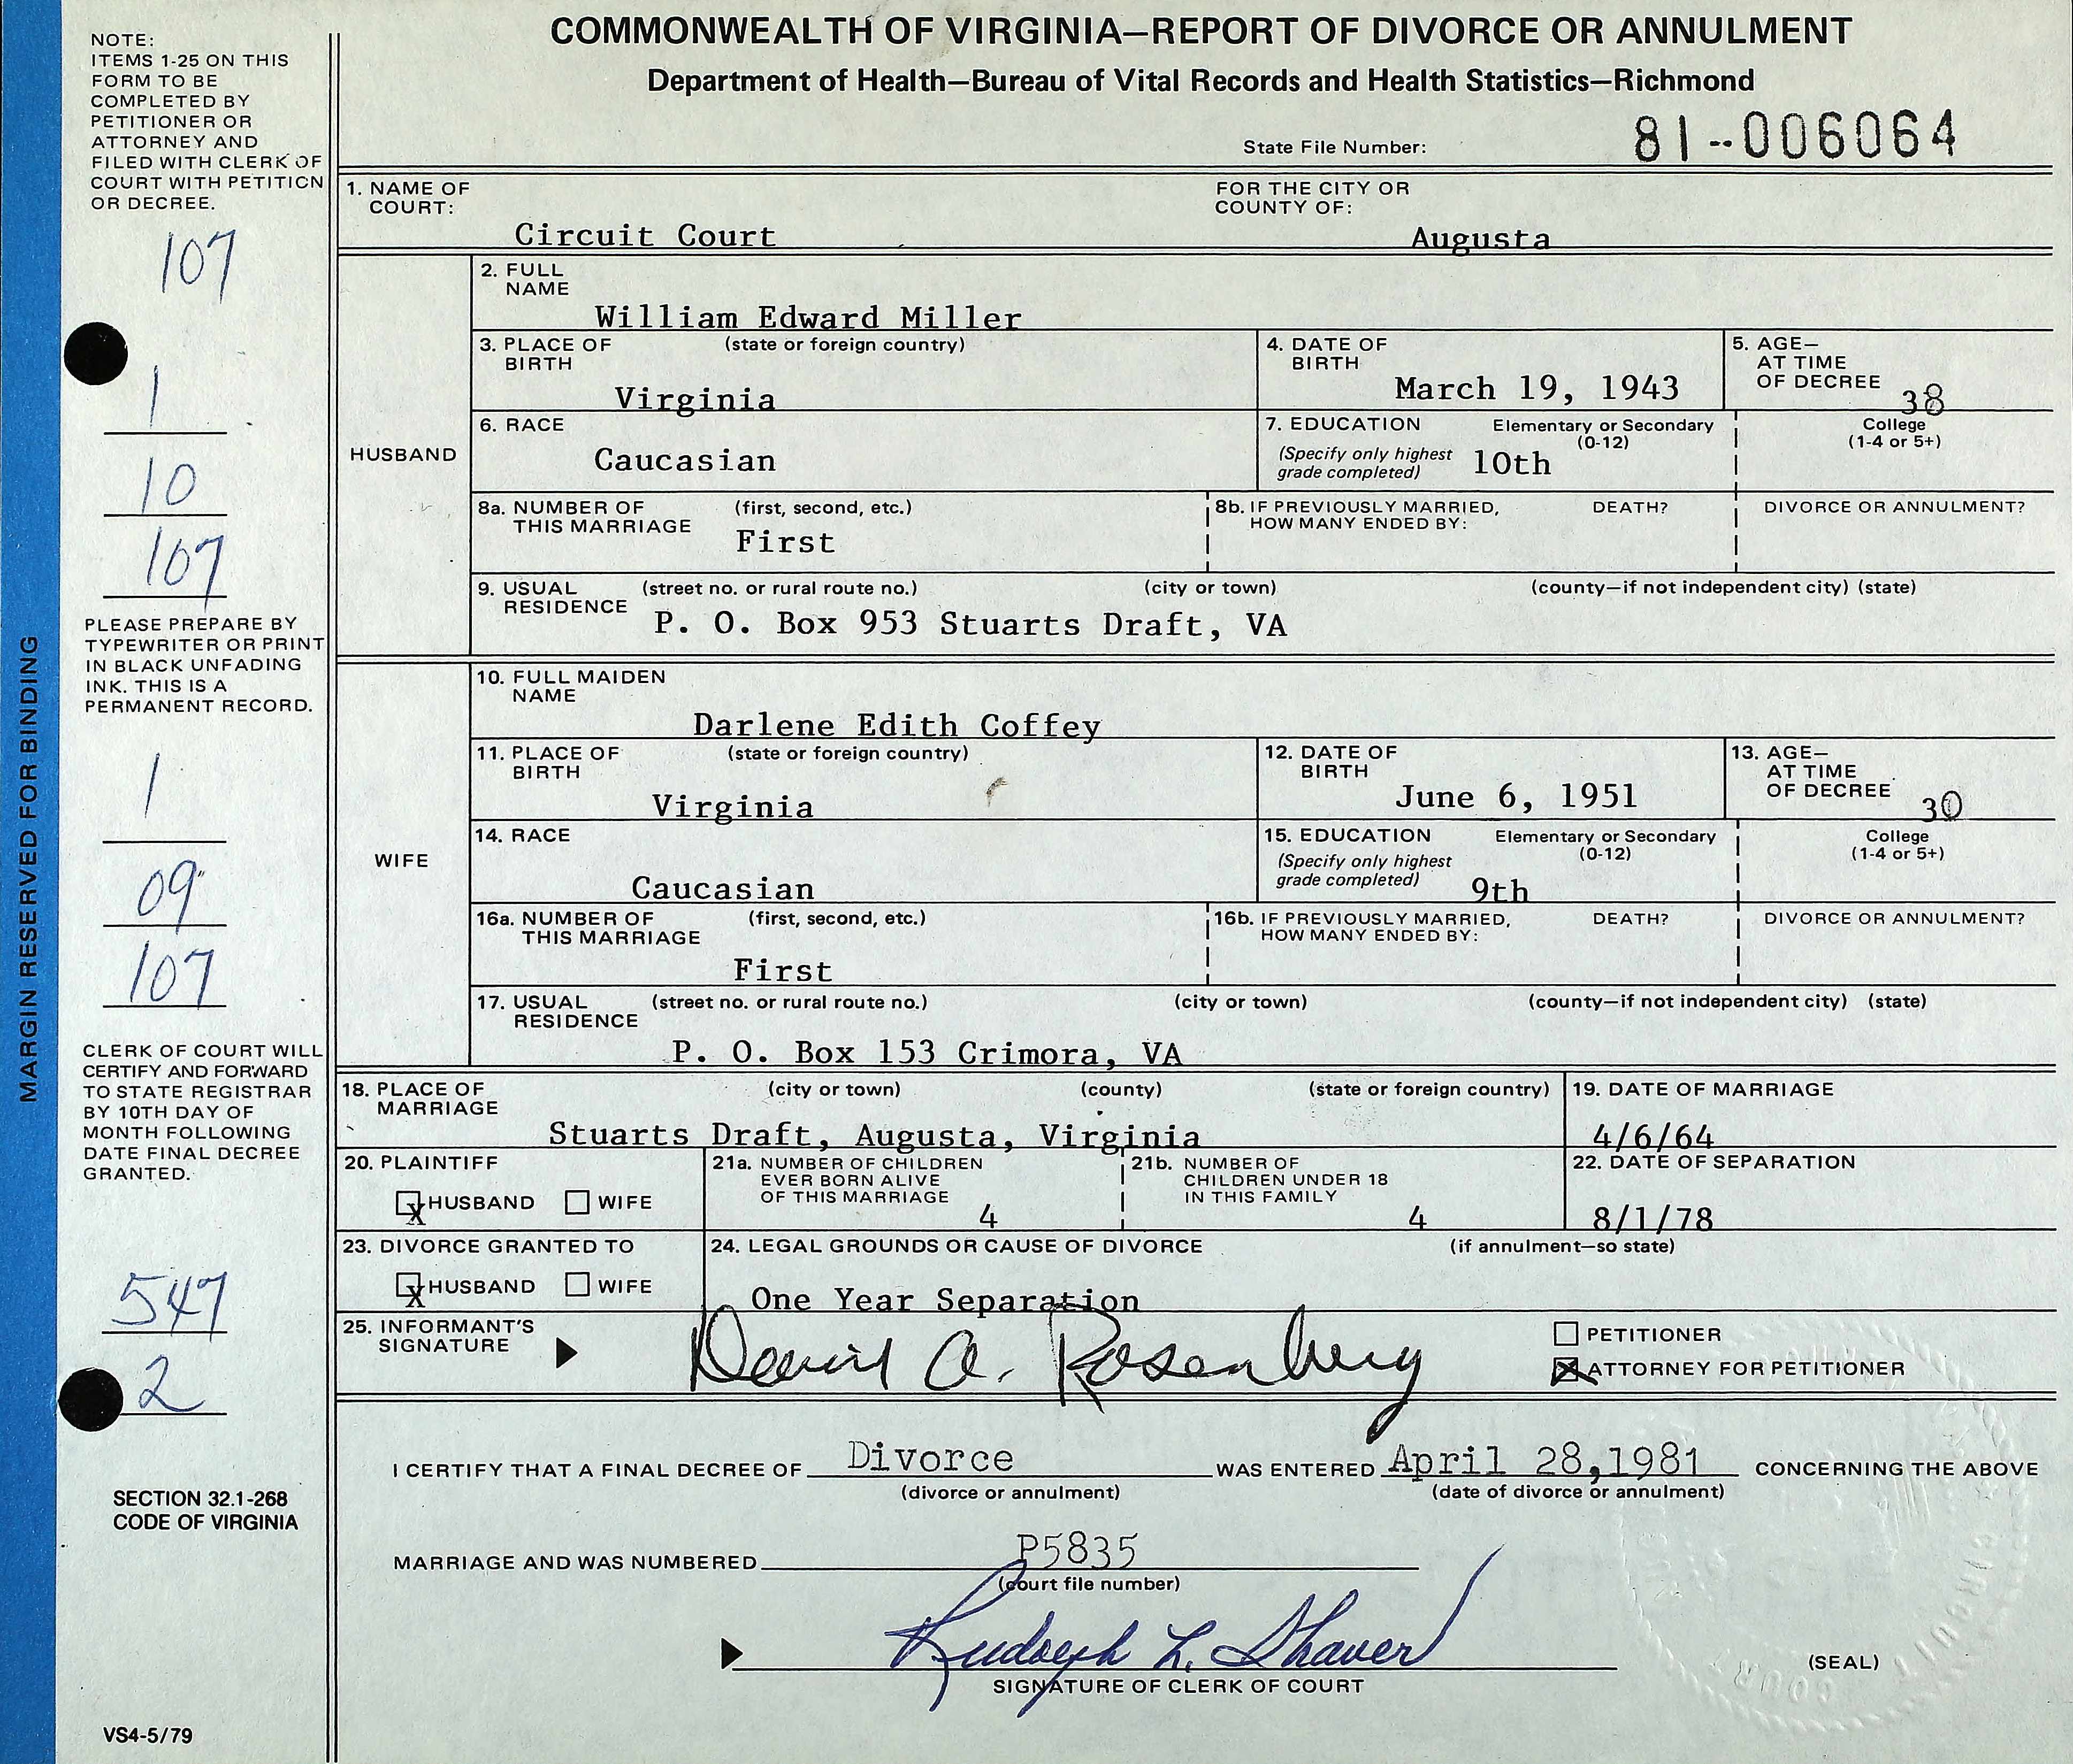 COMMONWEALTH OF VIRGINIA—REPORT OF DIVORCE OR ANNULMENT
Department of Health—Bureau of Vital Records and Health Statistics—Richmond
State File Number: 81--006064
NOTE:
ITEMS 1-25 ON THIS
FORM TO BE
COMPLETED BY
PETITIONER OR
ATTORNEY AND
FILED WITH CLERK OF
COURT WITH PETITION
OR DECREE.
107
1
10
107
PLEASE PREPARE BY
TYPEWRITER OR PRINT
IN BLACK UNFADING
INK. THIS IS A
PERMANENT RECORD.
1
09
107
CLERK OF COURT WILL
CERTIFY AND FORWARD
TO STATE REGISTRAR
BY 10TH DAY OF
MONTH FOLLOWING
DATE FINAL DECREE
GRANTED.
547
2
SECTION 32.1-268
CODE OF VIRGINIA
VS4-5/79
MARGIN RESERVED FOR BINDING
1. NAME OF COURT: Circuit Court FOR THE CITY OR COUNTY OF: Augusta
HUSBAND
2. FULL NAME William Edward Miller
3. PLACE OF BIRTH (state or foreign country) Virginia
4. DATE OF BIRTH March 19, 1943
5. AGE— AT TIME OF DECREE 38
6. RACE Caucasian
7. EDUCATION (Specify only highest grade completed) Elementary or Secondary (0-12) 10th College (1-4 or 5+)
8a. NUMBER OF THIS MARRIAGE (first, second, etc.) First
8b. IF PREVIOUSLY MARRIED, HOW MANY ENDED BY: DEATH? DIVORCE OR ANNULMENT?
9. USUAL RESIDENCE (street no. or rural route no.) (city or town) (county—if not independent city) (state)
P. O. Box 953 Stuarts Draft, VA
WIFE
10. FULL MAIDEN NAME Darlene Edith Coffey
11. PLACE OF BIRTH (state or foreign country) Virginia
12. DATE OF BIRTH June 6, 1951
13. AGE— AT TIME OF DECREE 30
14. RACE Caucasian
15. EDUCATION (Specify only highest grade completed) Elementary or Secondary (0-12) 9th College (1-4 or 5+)
16a. NUMBER OF THIS MARRIAGE (first, second, etc.) First
16b. IF PREVIOUSLY MARRIED, HOW MANY ENDED BY: DEATH? DIVORCE OR ANNULMENT?
17. USUAL RESIDENCE (street no. or rural route no.) (city or town) (county—if not independent city) (state)
P. O. Box 153 Crimora, VA
18. PLACE OF MARRIAGE (city or town) (county) (state or foreign country)
Stuarts Draft, Augusta, Virginia
19. DATE OF MARRIAGE 4/6/64
20. PLAINTIFF X HUSBAND WIFE
21a. NUMBER OF CHILDREN EVER BORN ALIVE OF THIS MARRIAGE 4
21b. NUMBER OF CHILDREN UNDER 18 IN THIS FAMILY 4
22. DATE OF SEPARATION 8/1/78
23. DIVORCE GRANTED TO X HUSBAND WIFE
24. LEGAL GROUNDS OR CAUSE OF DIVORCE (if annulment—so state)
One Year Separation
25. INFORMANT'S SIGNATURE David A. Rosenberg
PETITIONER
X ATTORNEY FOR PETITIONER
I CERTIFY THAT A FINAL DECREE OF Divorce WAS ENTERED April 28,1981 CONCERNING THE ABOVE
(divorce or annulment) (date of divorce or annulment)
MARRIAGE AND WAS NUMBERED P5835
(court file number)
Rudolph L. Shaver
SIGNATURE OF CLERK OF COURT
(SEAL)